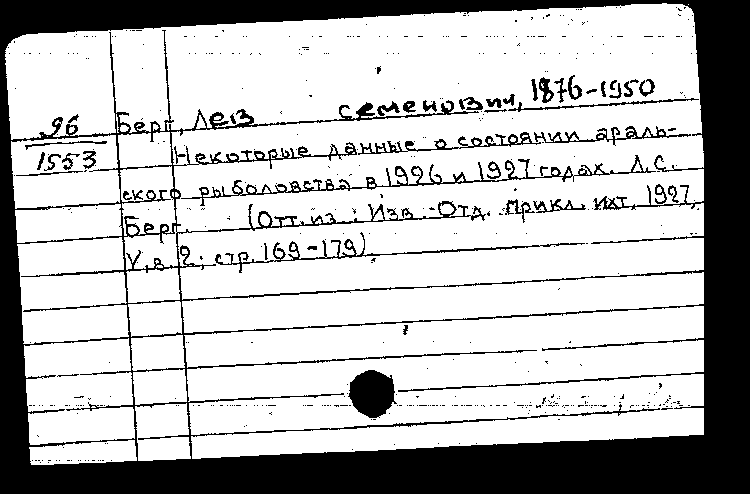 96
1553
Берг, Лев Семенович, 1876-1950
Некоторые данные о состоянии араль-
ского рыболовства в 1926 и 1927 годах. Л.С.
Берг. (Отт. из: Изв. Отд. прикл. ихт. 1927,
V, в. 2; стр. 169-179).